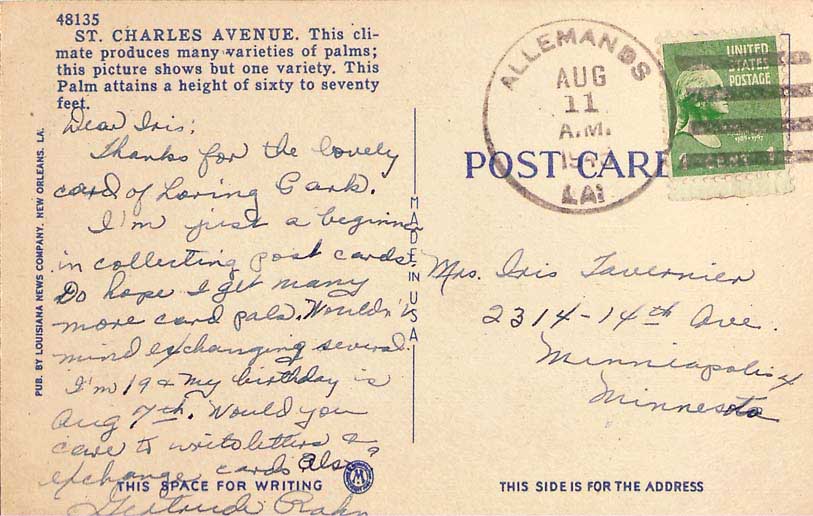 48135
ST. CHARLES AVENUE. This cli-
mate produces many varieties of palms;
this picture shows but one variety. This
Palm attains a height of sixty to seventy
feet.
PUB. BY LOUISIANA NEWS COMPANY, NEW ORLEANS, LA.
Dear Iris;
Thanks for the lovely
card of Loring Park.
I'm just a beginner
in collecting post cards.
Do hope I get many
more card pals. Wouldn't
mind exchanging several.
I'm 19 & my birthday is
Aug 7th. Would you
care to write letters &
exchange cards also?
Gertrude
THIS SPACE FOR WRITING
MADE IN USA
ALLEMANDS
AUG
11
A.M.
LA
UNITED
STATES
POSTAGE
POST CARD
Mrs. Iris Tavernier
2314-14th Ave.
Minneapolis 4
Minnesota
THIS SIDE IS FOR THE ADDRESS